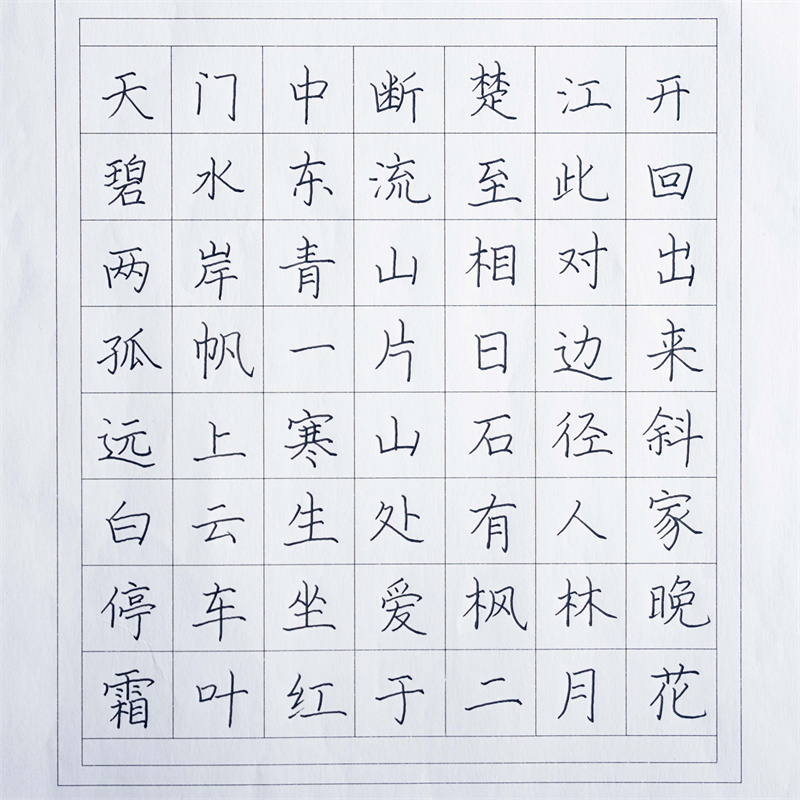 天门中断楚江开
碧水东流至此回
两岸青山相对出
孤帆一片日边来
远上寒山石径斜
白云生处有人家
停车坐爱枫林晚
霜叶红于二月花